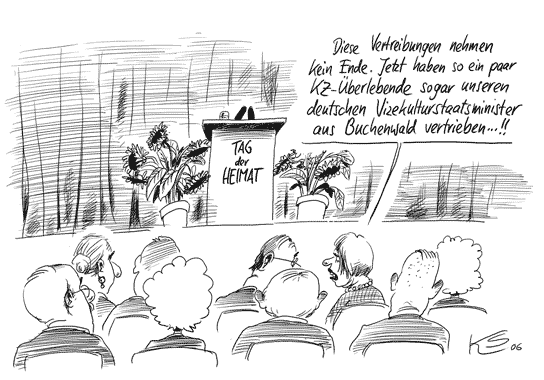 Diese Vertreibungen nehmen
kein Ende. Jetzt haben so ein paar
KZ-Überlebende sogar unseren
deutschen Vizekulturstaatsminister
aus Buchenwald vertrieben...!!
TAG
der
HEIMAT
KS 06